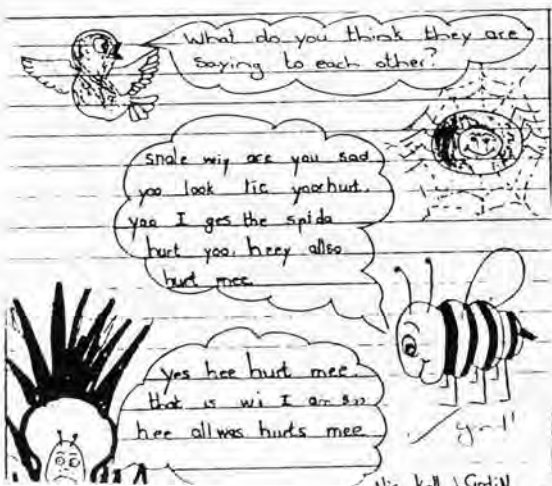 What do you think they are
saying to each other?
snale wiy are you sad
yoo look lic yoo hurt.
yoo I ges the spida
hurt yoo. heey allso
hurt mee.
yes hee hurt mee.
that is wi I am
hee allwas hurts mee